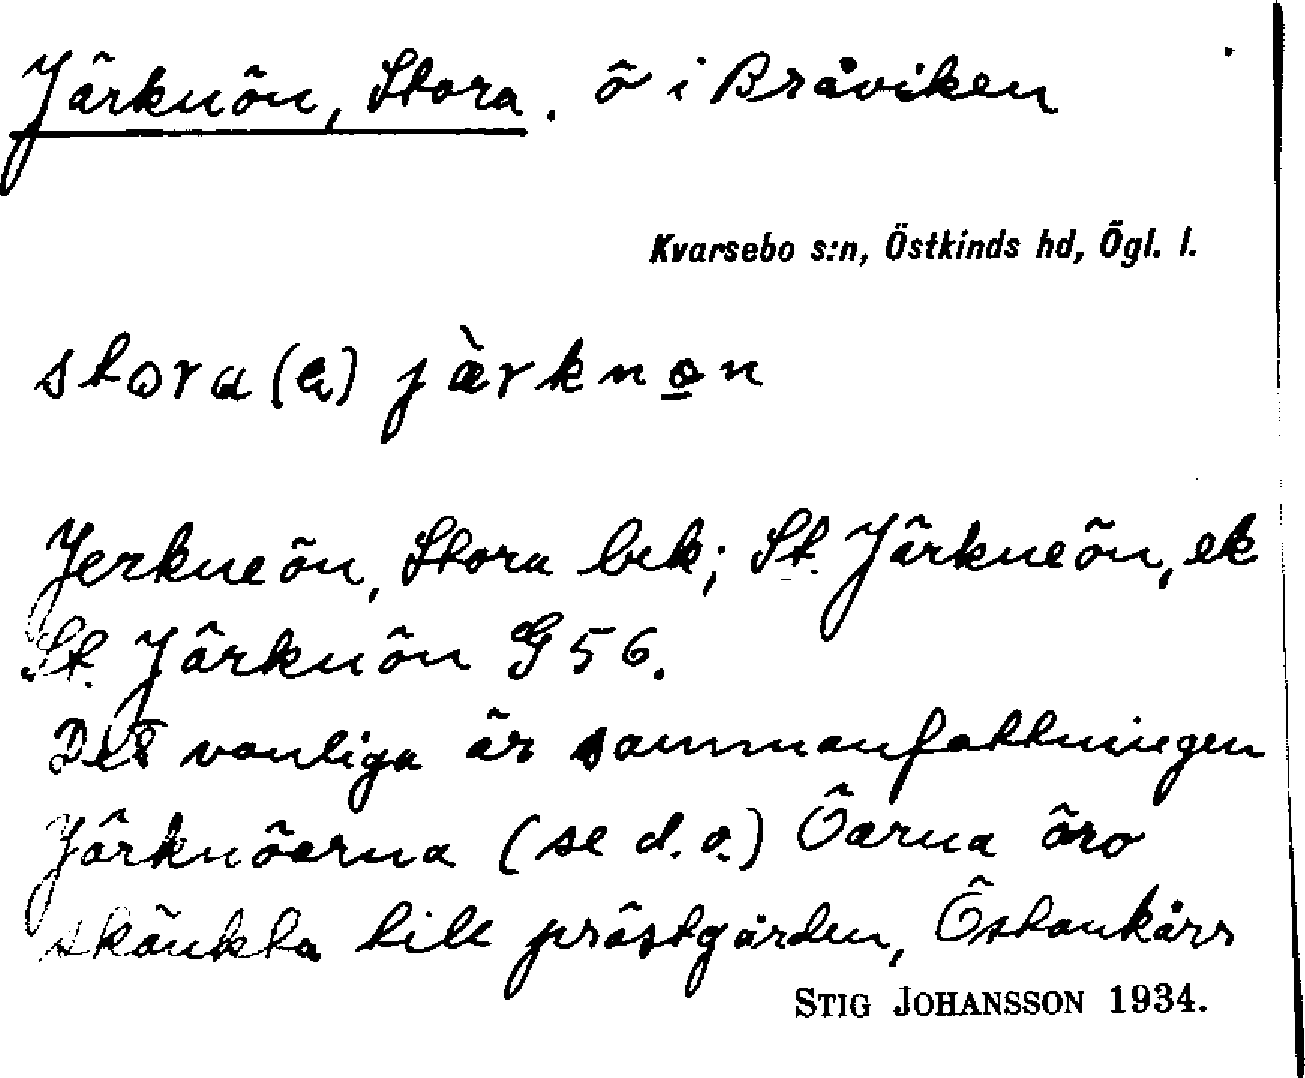 Järknön, Stora. ö i Bråviken
Kvarsebo s:n, Östkinds hd, Ögl. l.
stora(a) jàrknon
Jerkneön, Stora bek; St. Järkneön, ek
St. Järknön G 56.
Det vanliga är sammanfattningen
Järknöarna (se d. o.) Öarna äro
skänkta till prästgården, Östankärr
STIG JOHANSSON 1934.